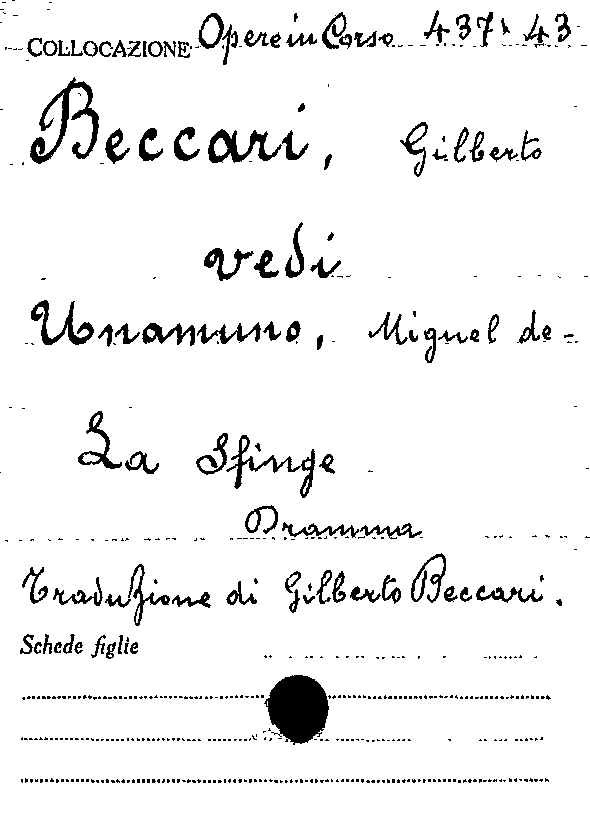 COLLOCAZIONE Opere in Corso 437 43
Beccari, Gilberto
vedi
Unamuno, Miguel de-
La Sfinge
Dramma
Traduzione di Gilberto Beccari.
Schede figlie